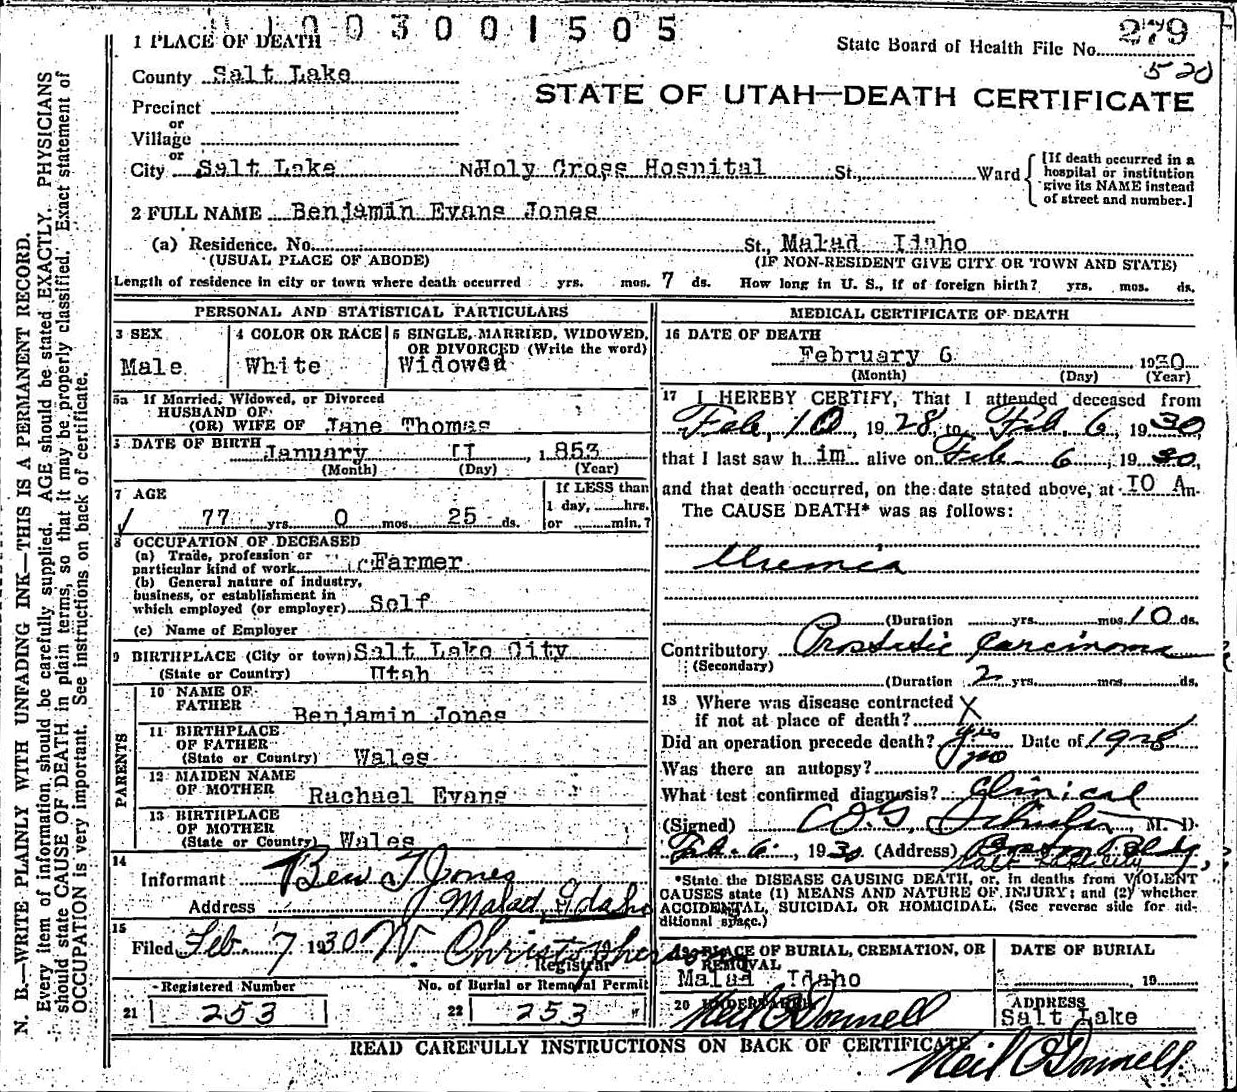 1003001505
279
520
1 PLACE OF DEATH
State Board of Health File No.
County Salt Lake
STATE OF UTAH—DEATH CERTIFICATE
Precinct
or
Village
or
City Salt Lake No Holy Cross Hospital St., Ward
[If death occurred in a hospital or institution give its NAME instead of street and number.]
2 FULL NAME Benjamin Evans Jones
(a) Residence. No. St. Malad Idaho
(USUAL PLACE OF ABODE) (IF NON-RESIDENT GIVE CITY OR TOWN AND STATE)
Length of residence in city or town where death occurred yrs. mos. 7 ds. How long in U. S., if of foreign birth? yrs. mos. ds.
PERSONAL AND STATISTICAL PARTICULARS
3 SEX
Male
4 COLOR OR RACE
White
5 SINGLE, MARRIED, WIDOWED, OR DIVORCED (Write the word)
Widowed
5a If Married, Widowed, or Divorced
HUSBAND OF
(OR) WIFE OF Jane Thomas
DATE OF BIRTH January II , 1853
(Month) (Day) (Year)
7 AGE
77 yrs. 0 mos. 25 ds.
If LESS than
1 day, hrs.
or min.?
8 OCCUPATION OF DECEASED
(a) Trade, profession or
particular kind of work Farmer
(b) General nature of industry,
business, or establishment in
which employed (or employer) Self
(c) Name of Employer
9 BIRTHPLACE (City or town) Salt Lake City
(State or Country) Utah
PARENTS
10 NAME OF
FATHER Benjamin Jones
11 BIRTHPLACE
OF FATHER
(State or Country) Wales
12 MAIDEN NAME
OF MOTHER Rachael Evans
13 BIRTHPLACE
OF MOTHER
(State or Country) Wales
14
Informant Ben T Jones
Address Malad, Idaho
15
Filed Feb. 7 1930 W. Christopherson
Registrar
Registered Number
21 253
No. of Burial or Removal Permit
22 253
MEDICAL CERTIFICATE OF DEATH
16 DATE OF DEATH
February 6 1930
(Month) (Day) (Year)
17 I HEREBY CERTIFY, That I attended deceased from
Feb, 10, 1928, to Feb. 6, 1930,
that I last saw h im alive on Feb 6, 1930,
and that death occurred, on the date stated above, at IO Am.
The CAUSE DEATH* was as follows:
Uremia
(Duration yrs. mos. 10 ds.
Contributory Prostatic Carcinoma
(Secondary)
(Duration 2 yrs. mos. ds.
18 Where was disease contracted
if not at place of death? X
Did an operation precede death? yes Date of 1928
Was there an autopsy? no
What test confirmed diagnosis? Clinical
(Signed) M. D.
Feb. 6, 1930 (Address) Boston Bldg,
Salt Lake City
*State the DISEASE CAUSING DEATH, or, in deaths from VIOLENT
CAUSES state (1) MEANS AND NATURE OF INJURY; and (2) whether
ACCIDENTAL, SUICIDAL OR HOMICIDAL. (See reverse side for additional space.)
19 PLACE OF BURIAL, CREMATION, OR REMOVAL
Malad Idaho
DATE OF BURIAL
, 19
20 UNDERTAKER
Neil O'Donnell
ADDRESS
Salt Lake
READ CAREFULLY INSTRUCTIONS ON BACK OF CERTIFICATE
Neil O'Donnell
N. B.—WRITE PLAINLY WITH UNFADING INK—THIS IS A PERMANENT RECORD.
Every item of information should be carefully supplied. AGE should be stated EXACTLY. PHYSICIANS
should state CAUSE OF DEATH in plain terms, so that it may be properly classified. Exact statement of
OCCUPATION is very important. See instructions on back of certificate.